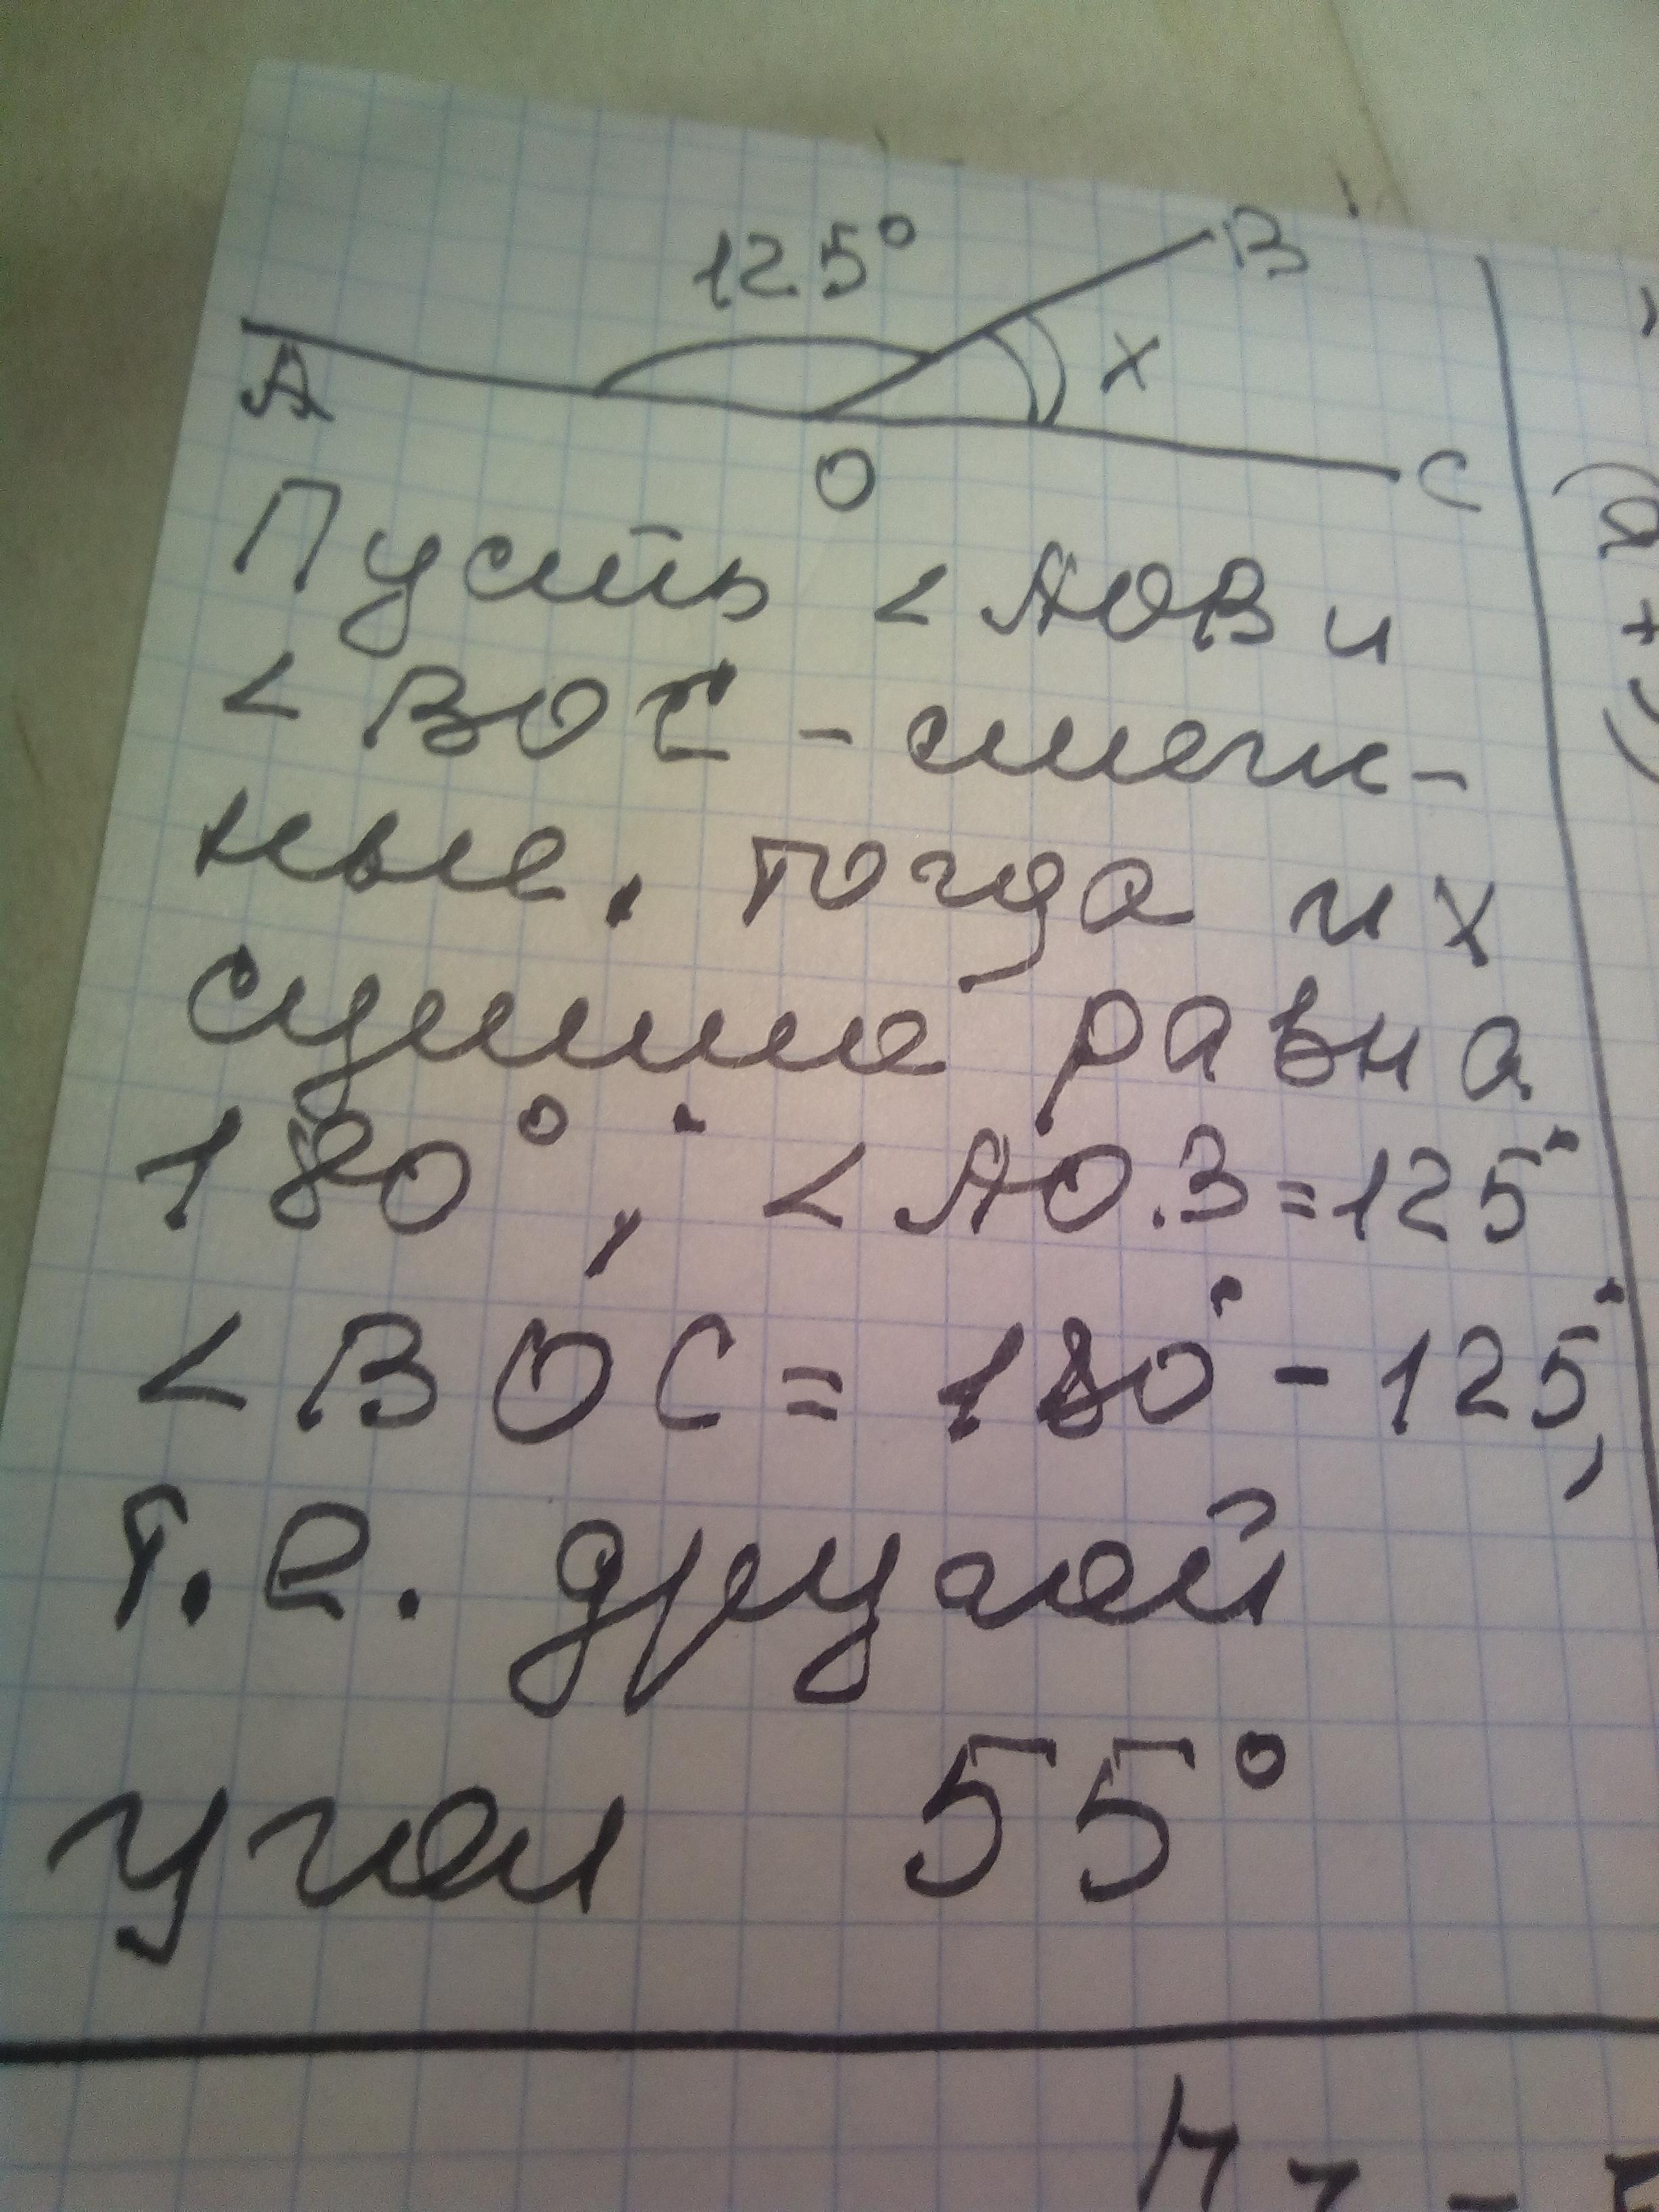 125°
B
A
x
O
C
Пусть < AOB и
< BOC - смеж-
ные, тогда их
сумма равна
180°, < AOB = 125°
< BOC = 180° - 125°,
т.е. другой
угол 55°